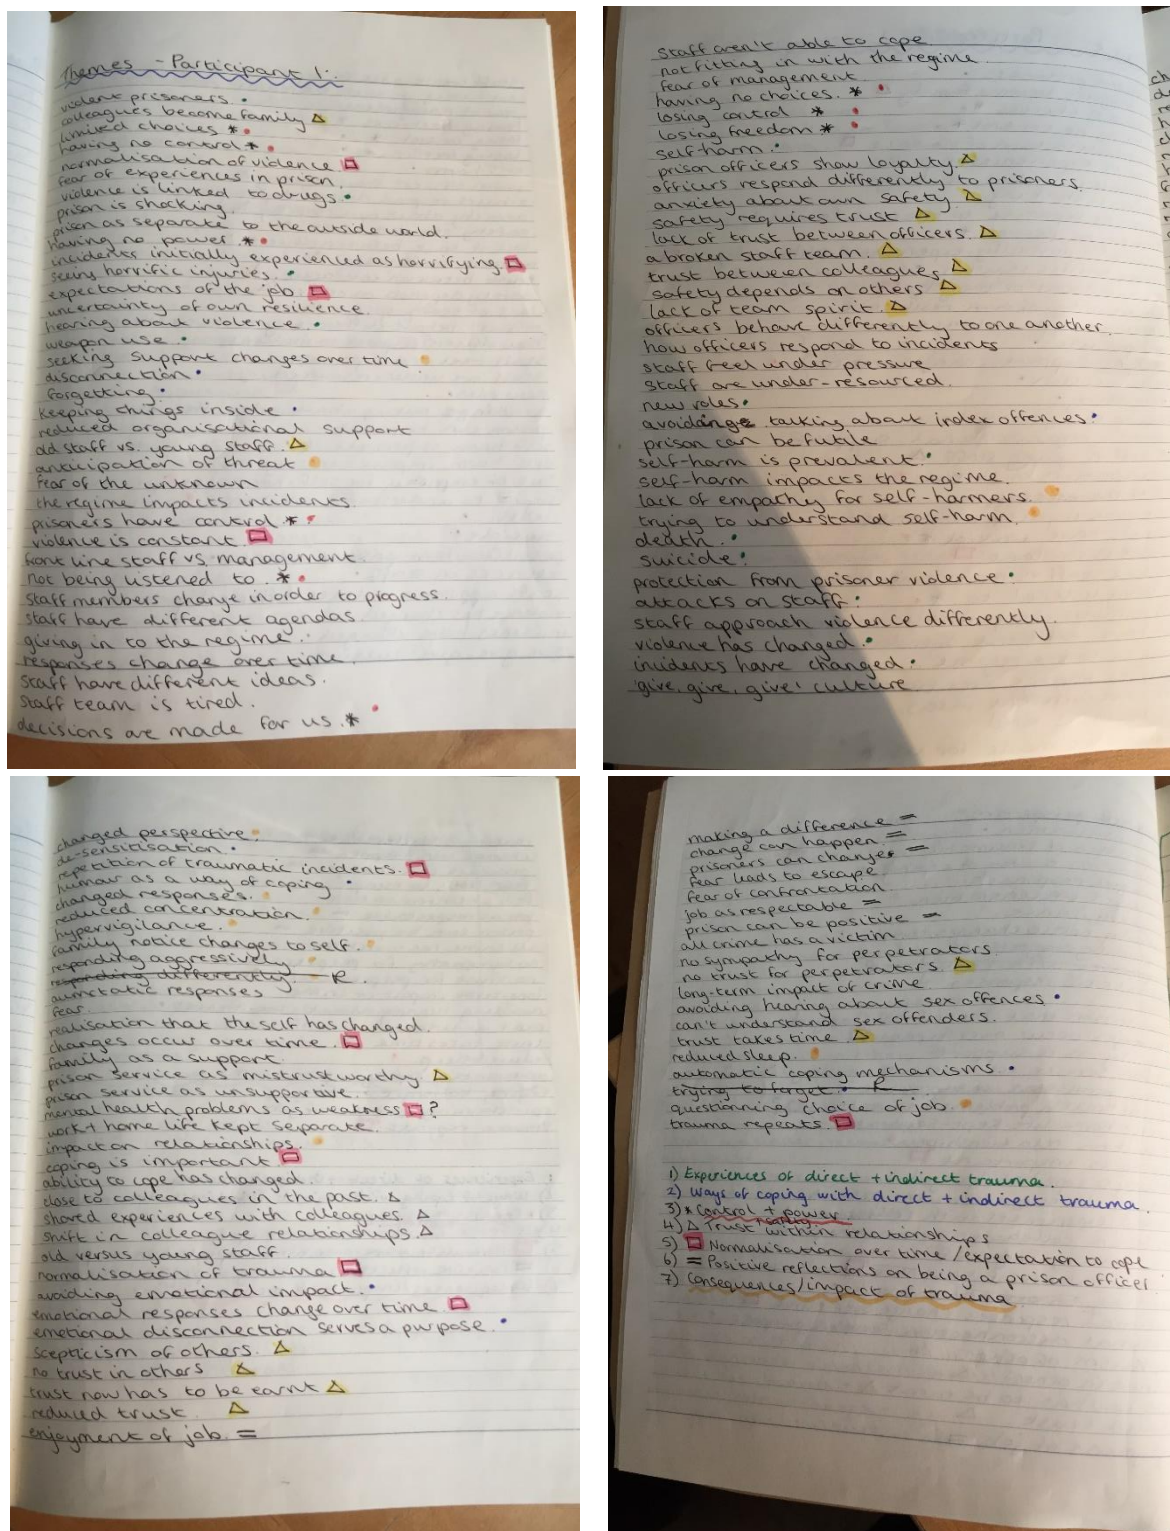 Themes - Participant 1:
violent prisoners.
colleagues become family
limited choices *
having no control *
normalisation of violence
fear of experiences in prison.
violence is linked to drugs
prison is shocking
prison as separate to the outside world.
having no power *
incidents initially experienced as horrifying.
seeing horrific injuries.
expectations of the job
uncertainty of own resilience
hearing about violence
weapon use
seeking support changes over time
disconnection
forgetting
keeping things inside
reduced organisational support
old staff vs. young staff.
anticipation of threat
fear of the unknown
the regime impacts incidents
prisoners have control *
violence is constant
front line staff vs. management.
not being listened to . *
staff members change in order to progress.
staff have different agendas.
giving in to the regime.
responses change over time.
staff have different ideas.
staff team is tired.
decisions are made for us. *
staff aren't able to cope
not fitting in with the regime.
fear of management
having no choices. *
losing control *
losing freedom *
self-harm.
prison officers show loyalty.
officers respond differently to prisoners.
anxiety about own safety
safety requires trust
lack of trust between officers.
a broken staff team.
trust between colleagues
safety depends on others
lack of team spirit.
officers behave differently to one another.
how officers respond to incidents
staff feel under pressure
staff are under-resourced.
new roles.
avoiding talking about index offences.
prison can be futile
self-harm is prevalent.
self-harm impacts the regime.
lack of empathy for self-harmers.
trying to understand self-harm.
death.
suicide.
protection from prisoner violence
attacks on staff.
staff approach violence differently.
violence has changed.
incidents have changed.
'give, give, give' culture
changed perspective.
de-sensitisation.
repetition of traumatic incidents.
humour as a way of coping
changed responses.
reduced concentration.
hypervigilance.
family notice changes to self.
responding aggressively
responding differently - R.
automatic responses
fear.
realisation that the self has changed.
changes occur over time.
family as a support.
prison service as mistrustworthy.
prison service as unsupportive.
mental health problems as weakness ?
work + home life kept separate.
impact on relationships.
coping is important
ability to cope has changed.
close to colleagues in the past.
shared experiences with colleagues.
shift in colleague relationships.
old versus young staff.
normalisation of trauma
avoiding emotional impact.
emotional responses change over time
emotional disconnection serves a purpose.
scepticism of others.
no trust in others
trust now has to be earnt
reduced trust.
enjoyment of job. =
making a difference =
change can happen =
prisoners can change =
fear leads to escape
fear of confrontation
job as respectable =
prison can be positive =
all crime has a victim
no sympathy for perpetrators
no trust for perpetrators.
long-term impact of crime
avoiding hearing about sex offences
can't understand sex offenders.
trust takes time
reduced sleep.
automatic coping mechanisms
trying to forget. R
questionning choice of job.
trauma repeats.
1) Experiences of direct + indirect trauma.
2) Ways of coping with direct + indirect trauma.
3) * Control + power
4) Δ Trust within relationships
5) Normalisation over time / expectation to cope
6) = Positive reflections on being a prison officer
7) Consequences/impact of trauma